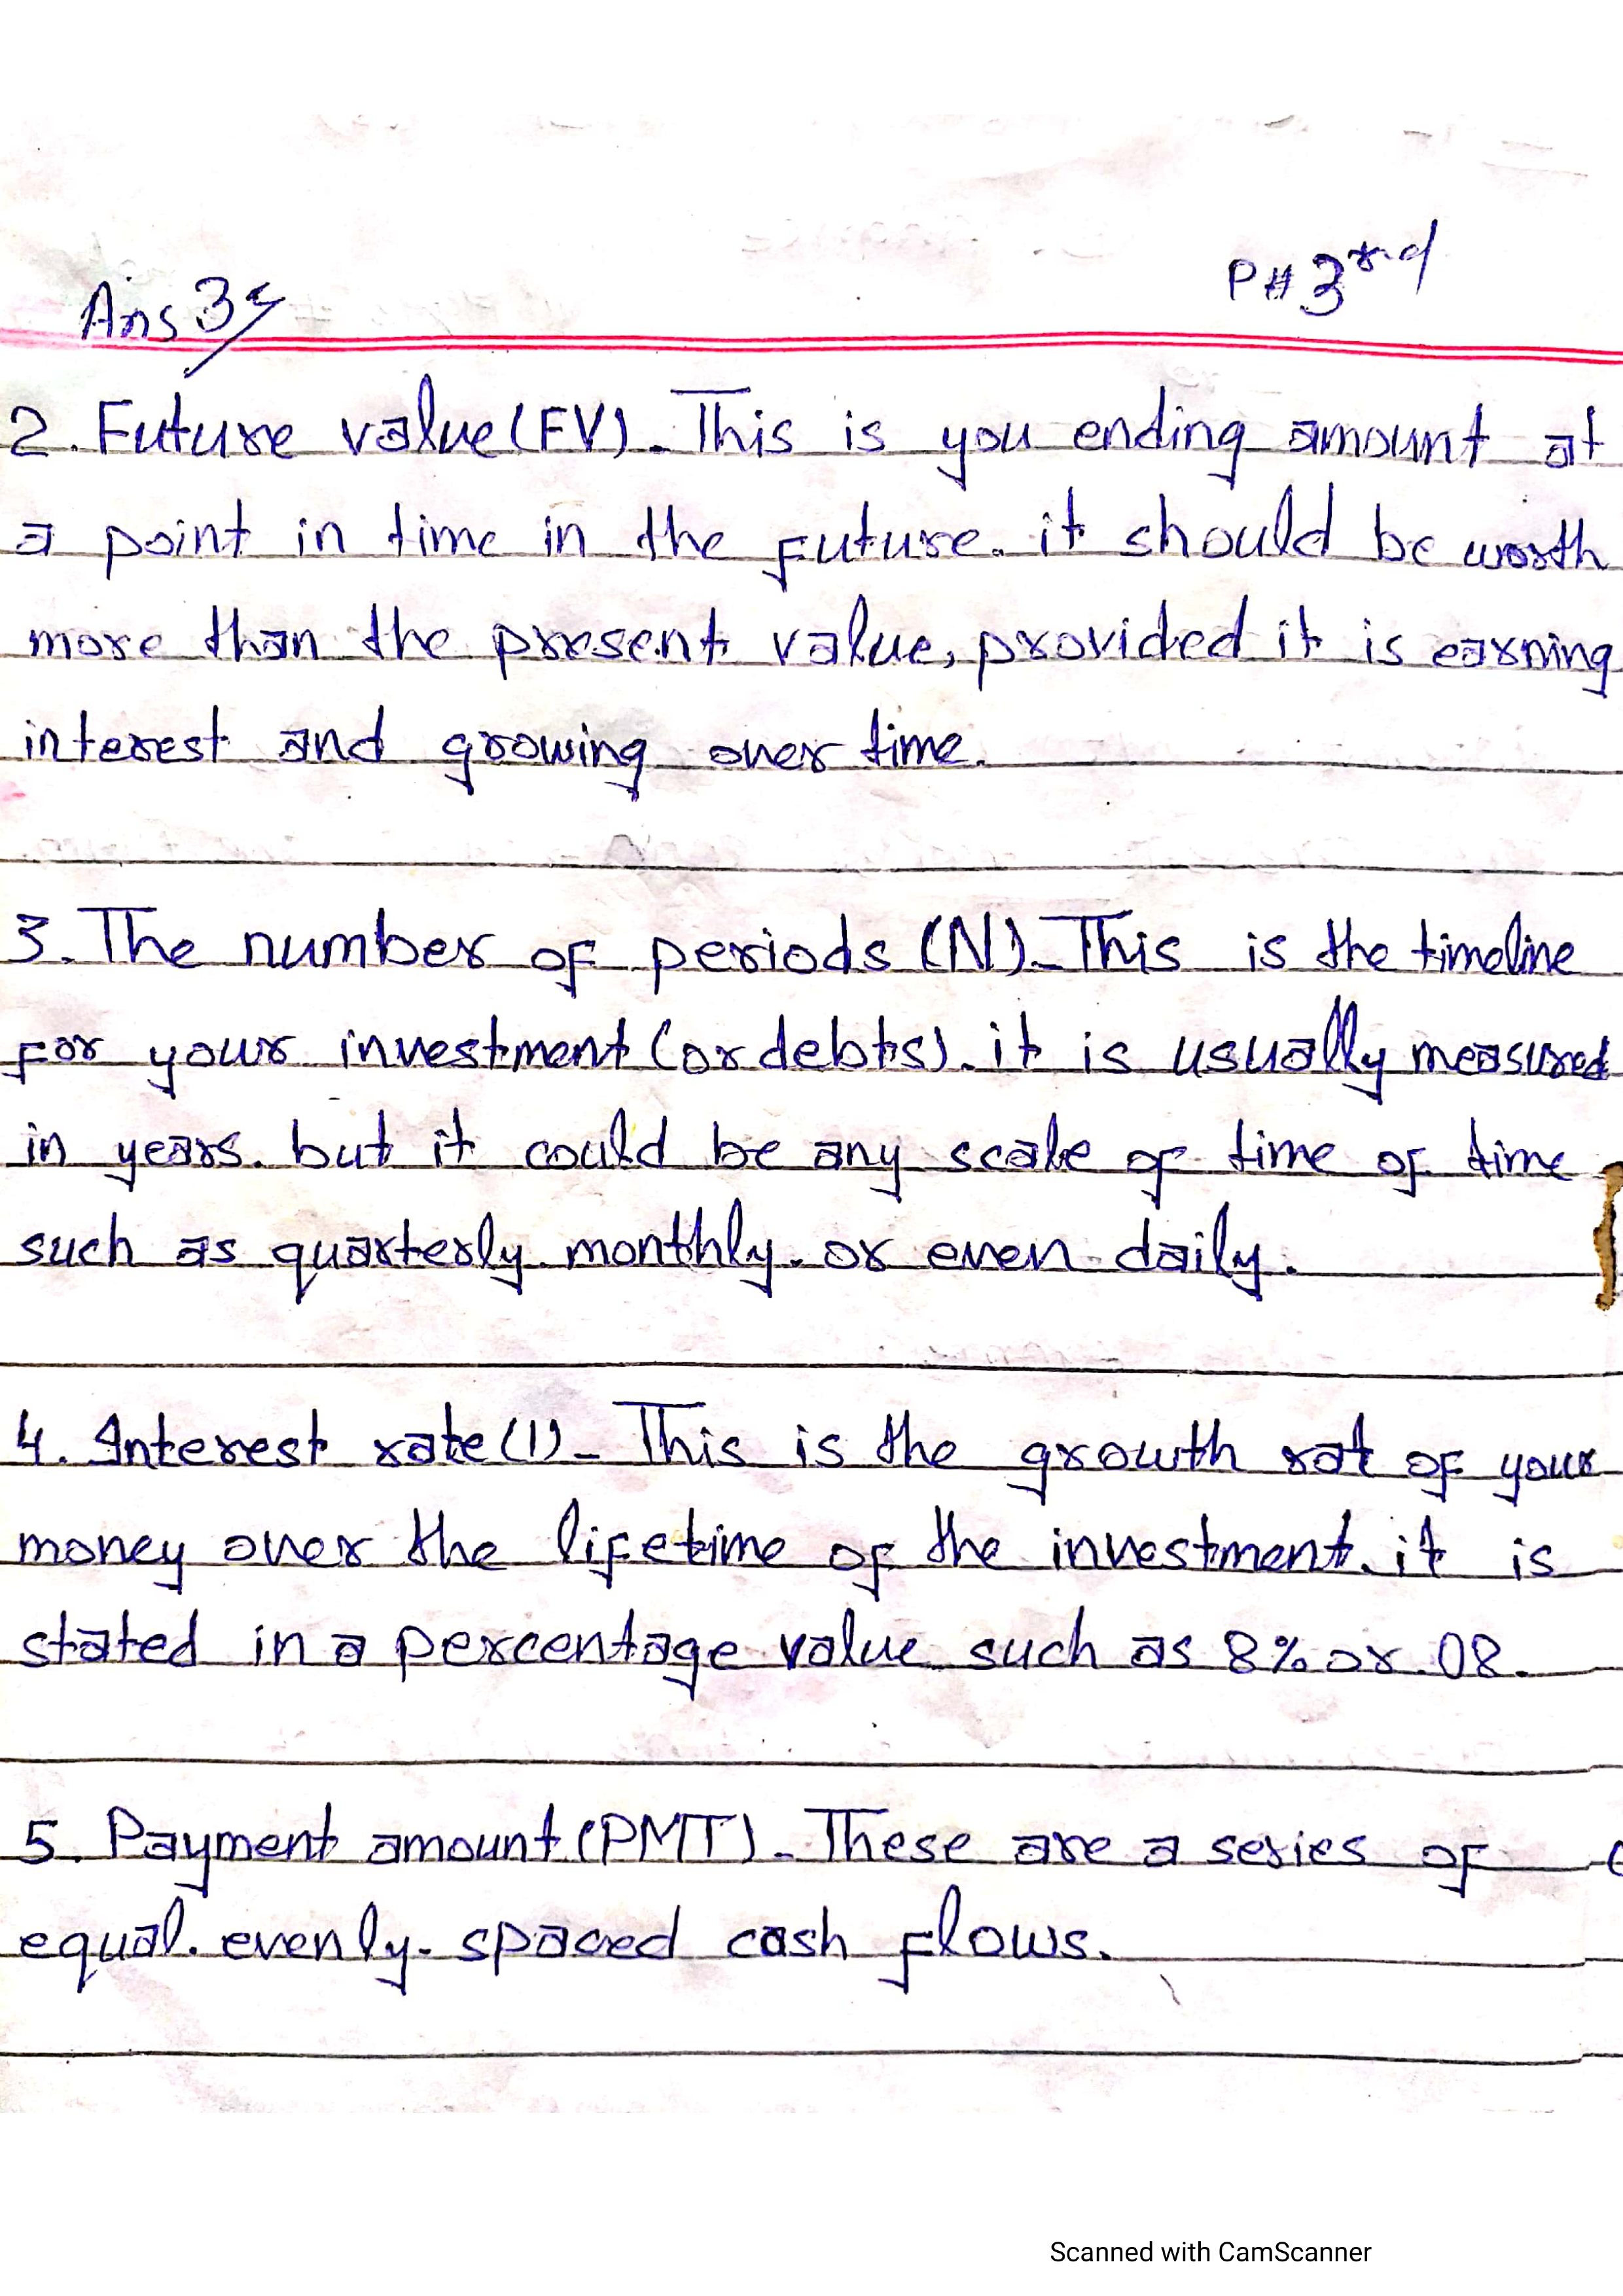 Ans 3
P# 3rd
2. Future value (FV). This is you ending amount at
a point in time in the future. it should be worth
more than the present value, provided it is earning
interest and growing over time.
3. The number of periods (N). This is the timeline
for your investment (or debts). it is usually measured
in years. but it could be any scale of time of time
such as quarterly. monthly. or even daily.
4. Interest rate (I)- This is the growth rat of your
money over the lifetime of the investment. it is
stated in a percentage value such as 8% or .08.
5. Payment amount (PMT). These are a series of
equal. evenly- spaced cash flows.
Scanned with CamScanner